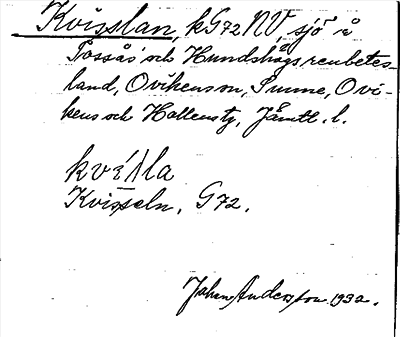 Kvisslan, kG72NV, sjö å
Tossås och Hundshögs renbetes-
land, Ovikens sn, Sunne, Ovi-
kens och Hallens tg, Jämtl. l.
Kvisseln, G72.
Johan Anderson 1932.